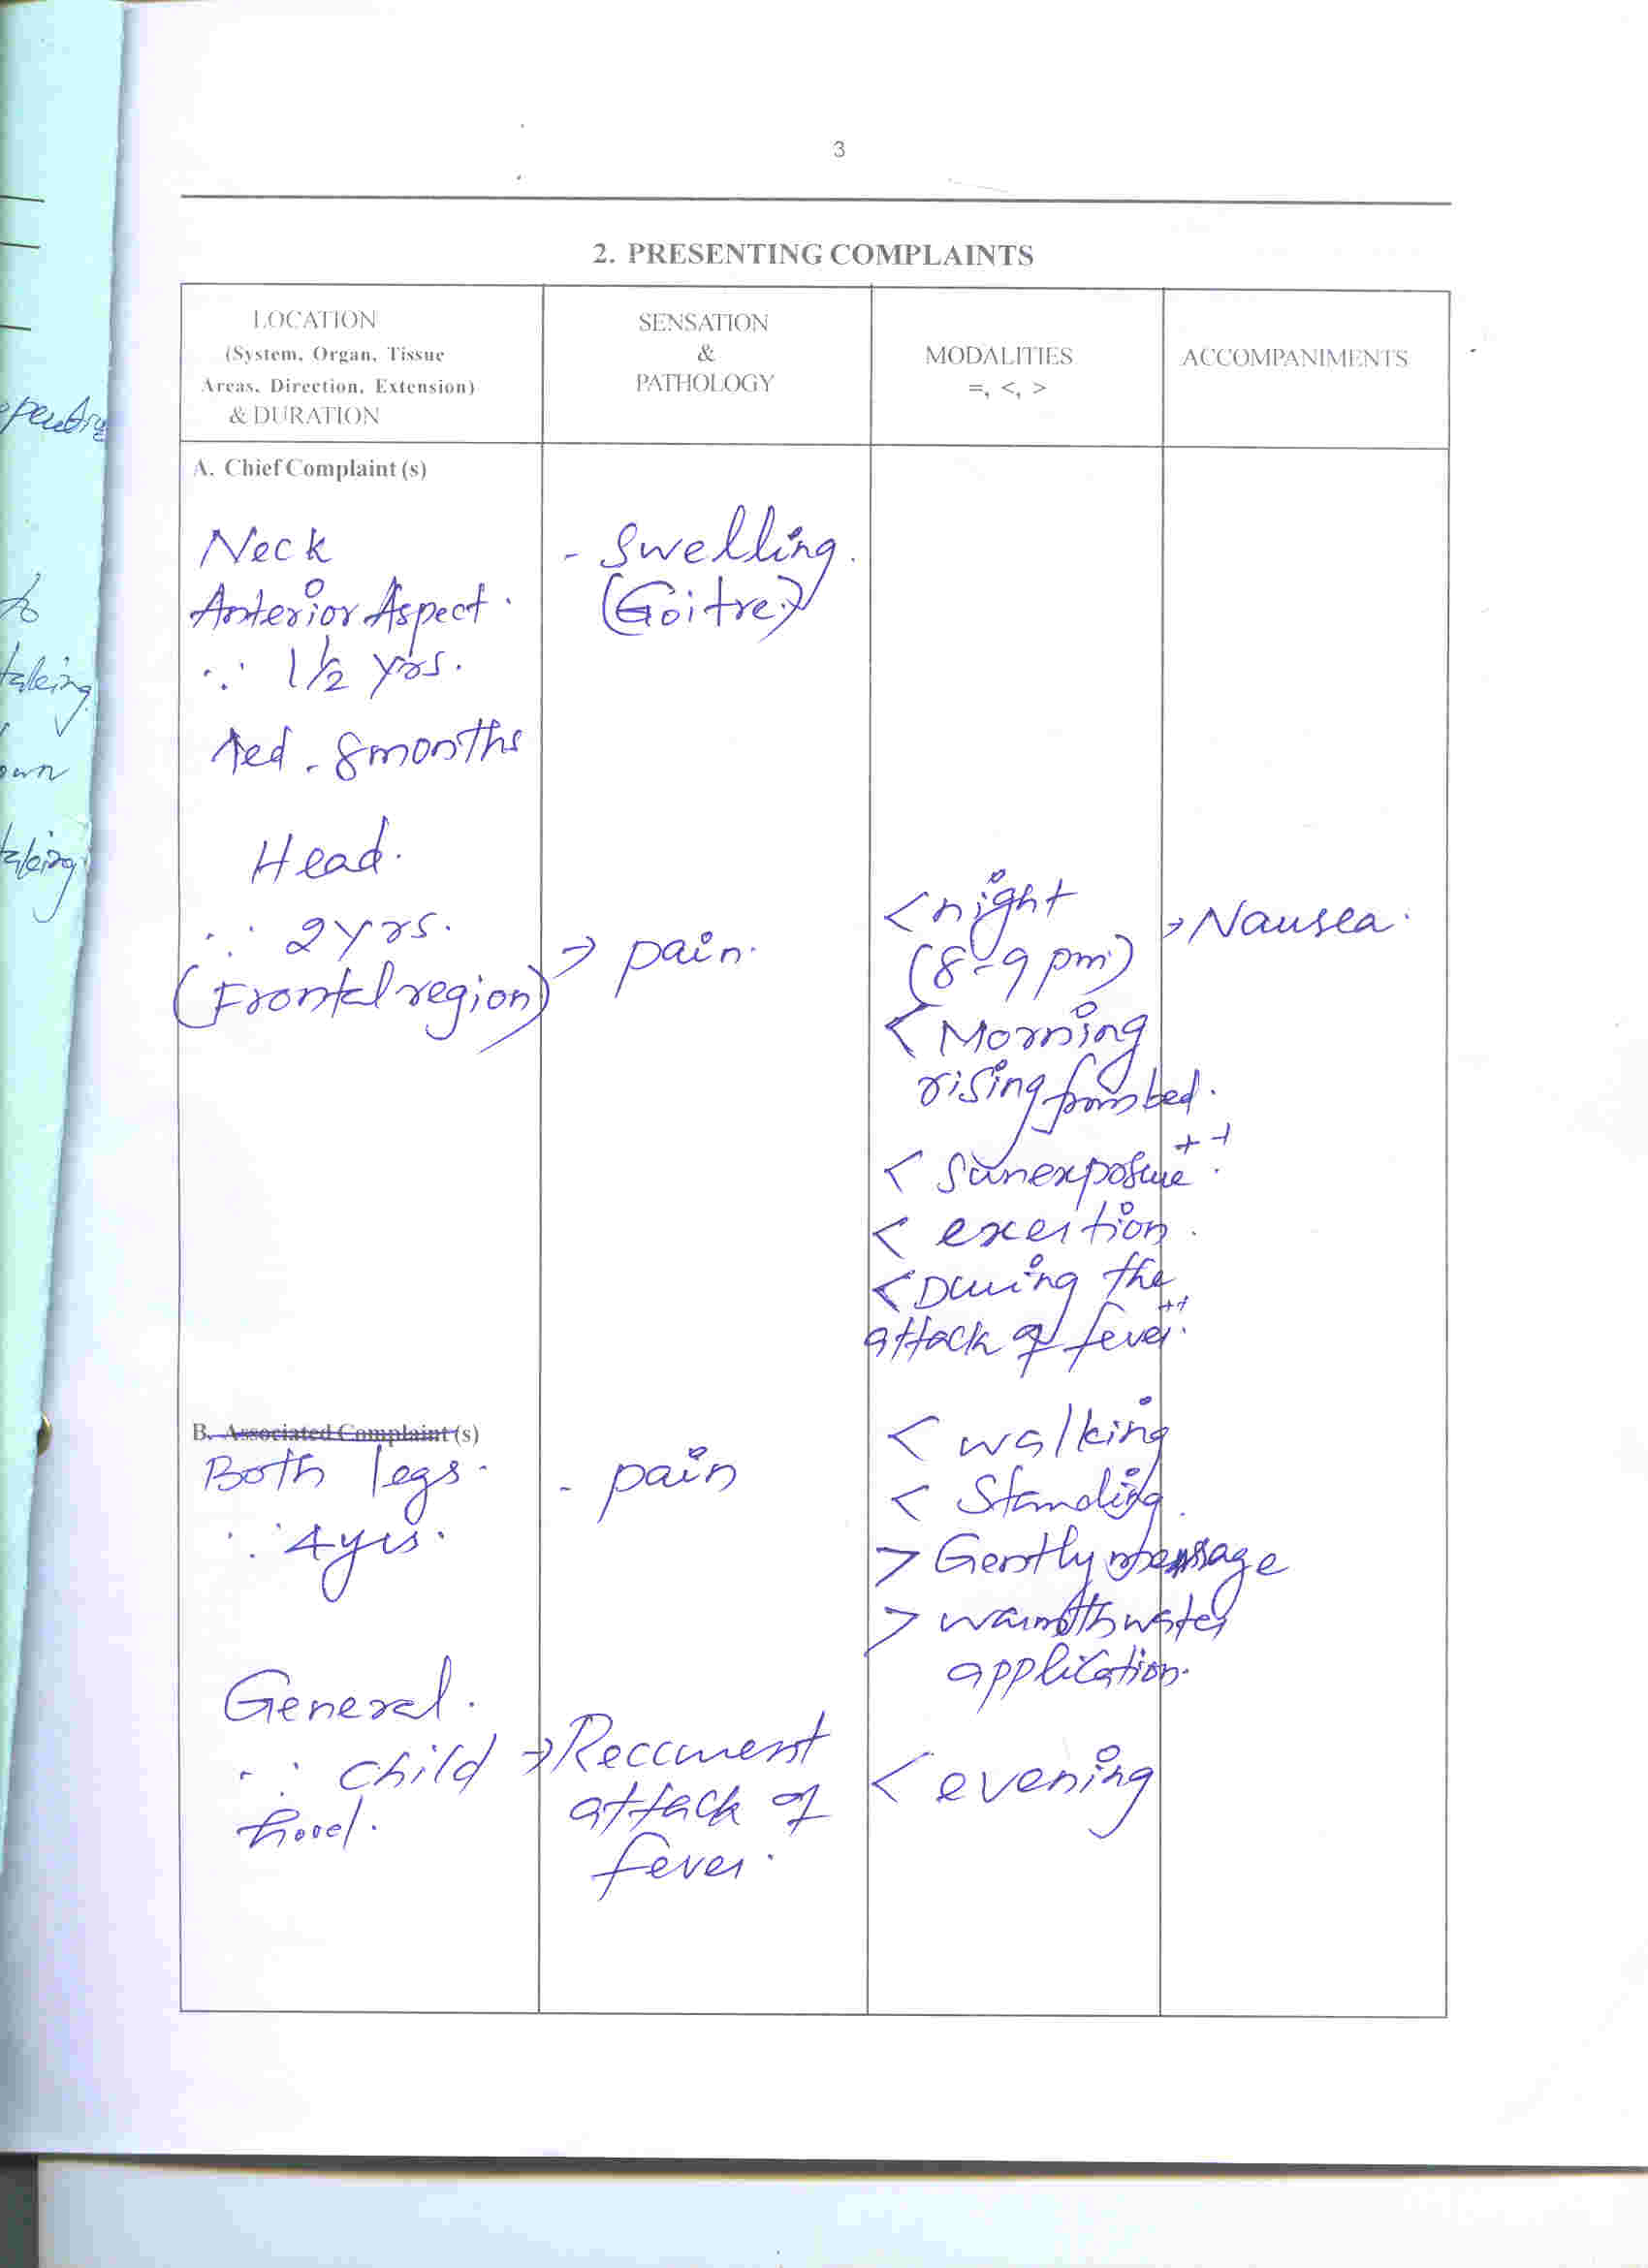 3
2. PRESENTING COMPLAINTS
LOCATION
(System, Organ, Tissue
Areas, Direction, Extension)
& DURATION
SENSATION
&
PATHOLOGY
MODALITIES
=, <, >
ACCOMPANIMENTS
A. Chief Complaint (s)
Neck
Anterior Aspect.
∵ 1½ yrs.
↑ed - 8 months
- Swelling.
(Goitre)
Head.
∵ 2 yrs.
(Frontal region)
→ pain.
< night
(8-9 pm)
< Morning
rising from bed.
< Sunexposure ++
< exertion.
< During the
attack of fever ++
→ Nausea.
B. Associated Complaint (s)
Both legs.
∵ 4 yrs.
- pain
< walking
< Standing.
> Gently massage
> warmth water
application.
General.
∵ child
hood.
→ Reccurent
attack of
fever.
< evening
to
taking
own
taking